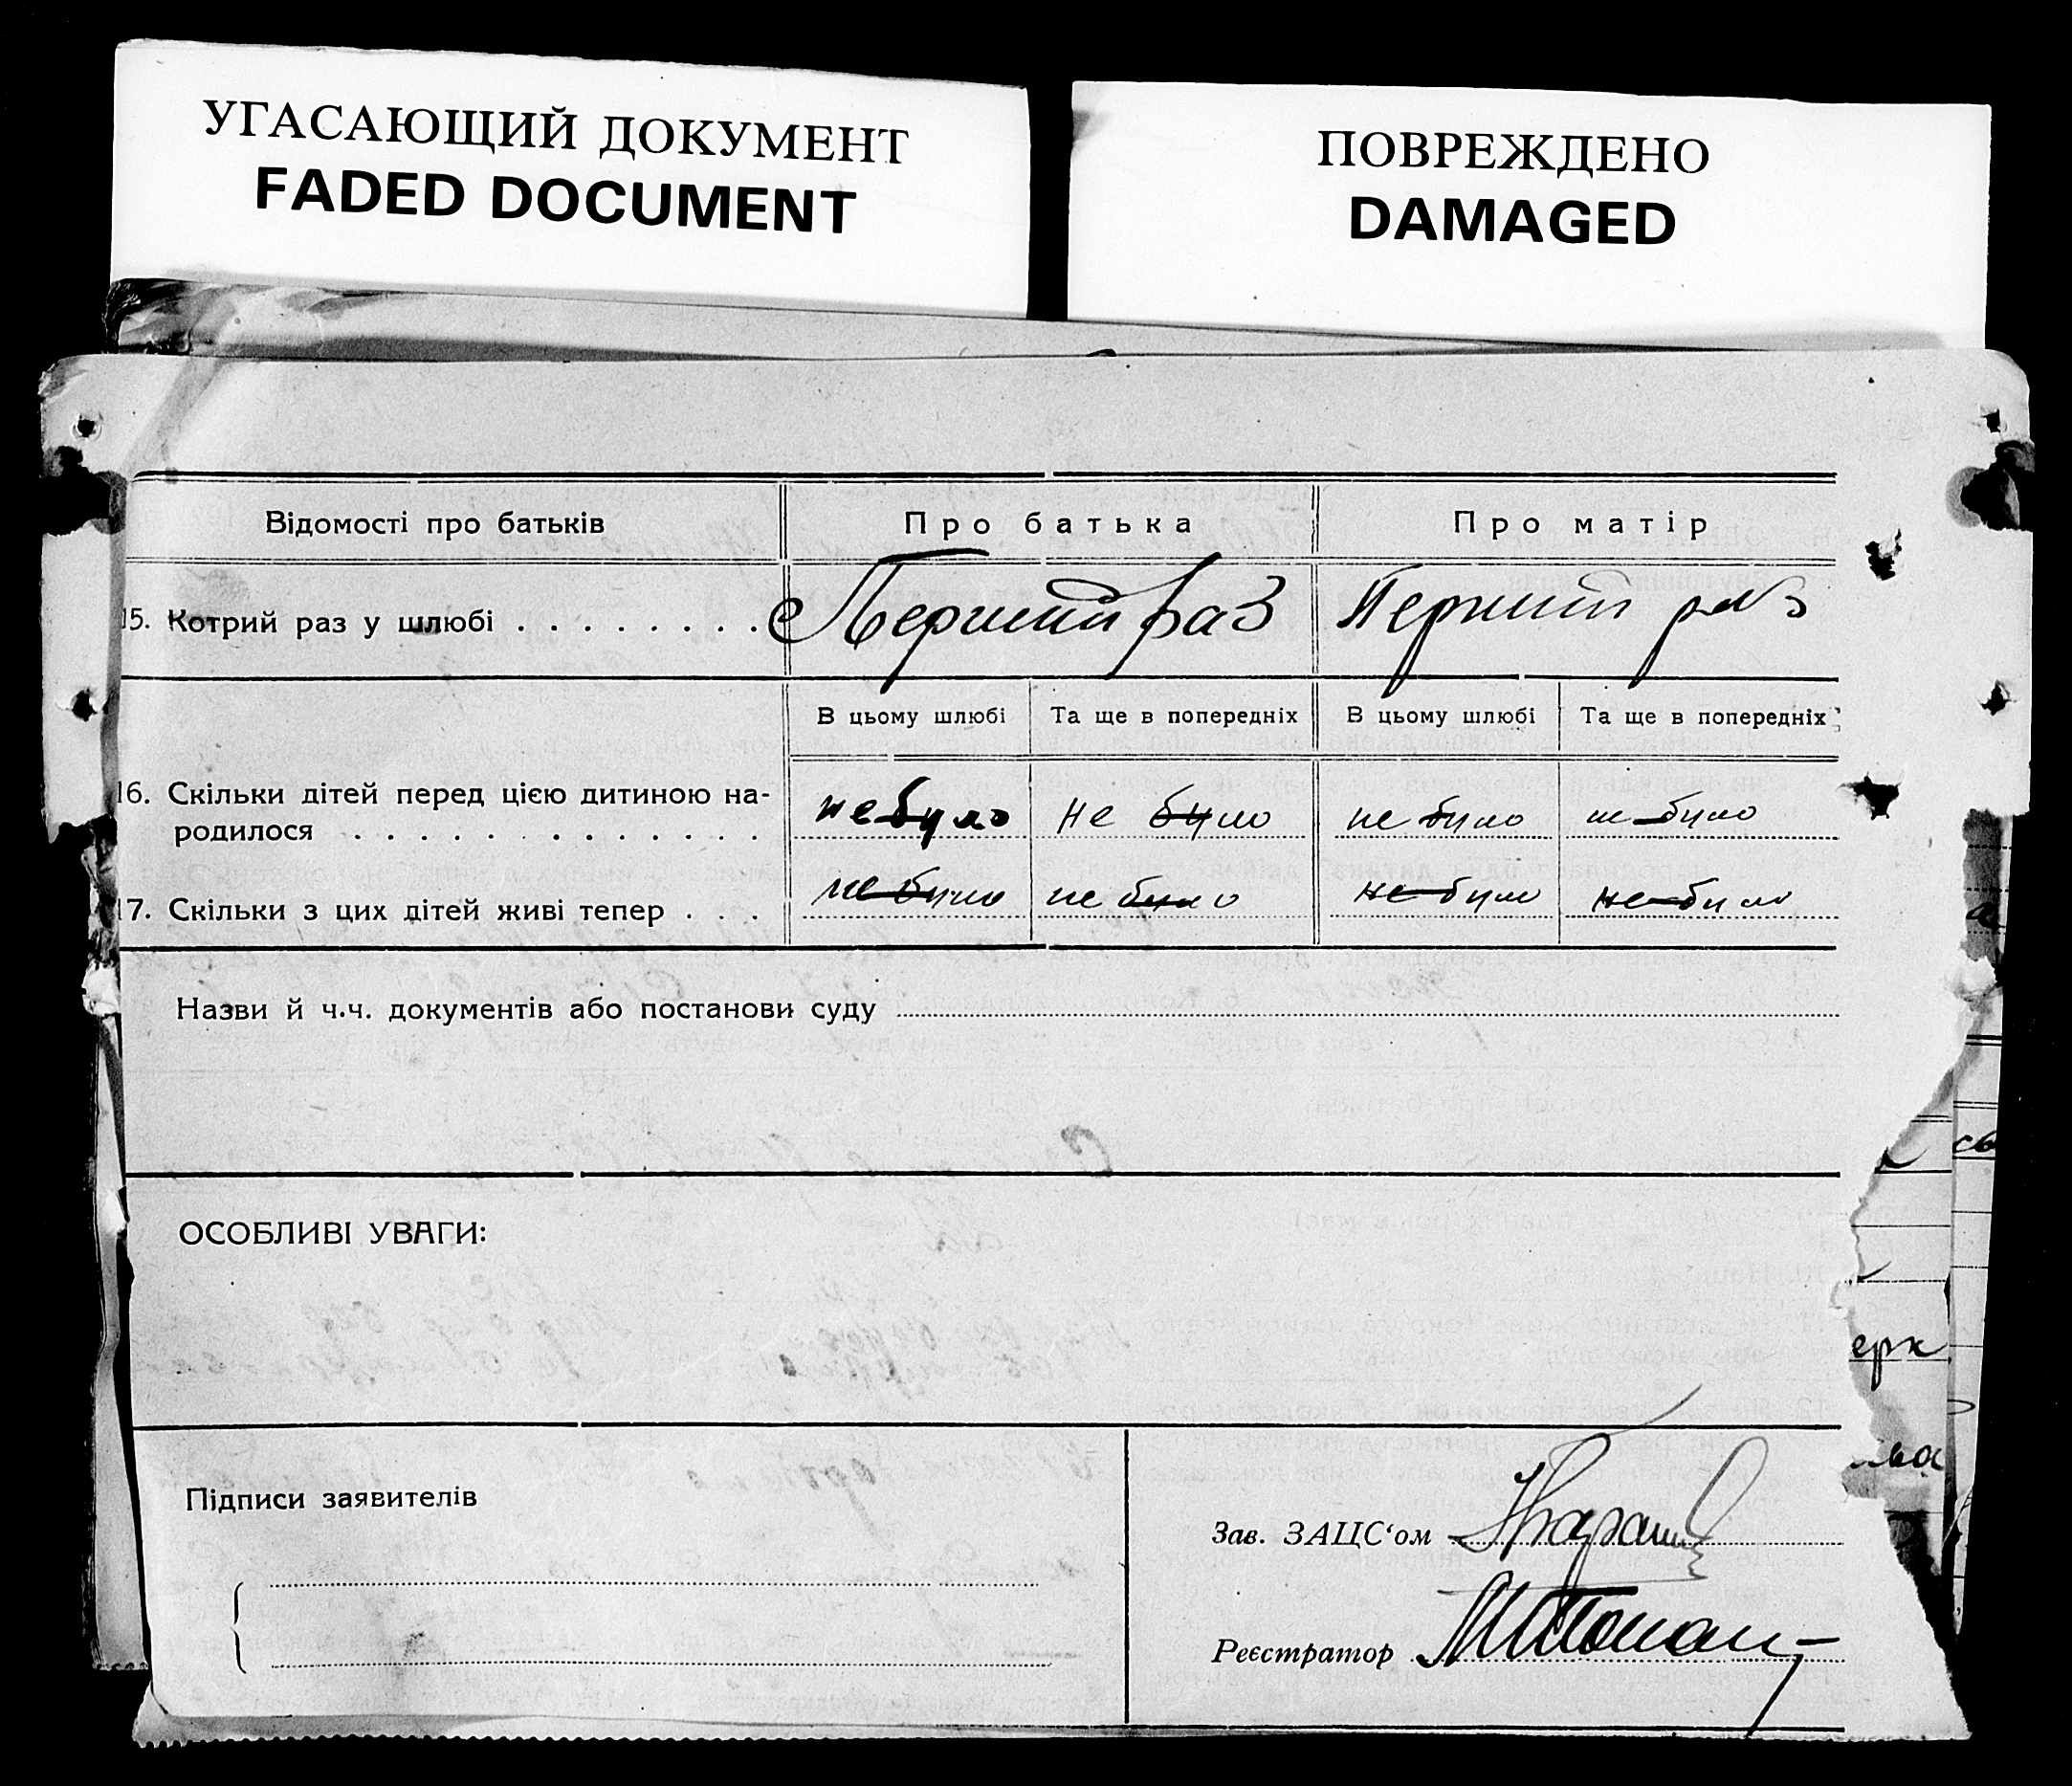 УГАСАЮЩИЙ ДОКУМЕНТ
FADED DOCUMENT
ПОВРЕЖДЕНО
DAMAGED
Відомості про батьків
Про батька
Про матір
15. Котрий раз у шлюбі . . . . . . . .
Перший раз
Перший раз
В цьому шлюбі
Та ще в попередніх
В цьому шлюбі
Та ще в попередніх
16. Скільки дітей перед цією дитиною на-
родилося . . . . . . . . . . . . .
не було
не було
не було
не було
17. Скільки з цих дітей живі тепер . . .
не було
не було
не було
не було
Назви й ч.ч. документів або постанови суду
ОСОБЛИВІ УВАГИ:
ерк
ьва
Підписи заявителів
Зав. ЗАЦС‘ом
Реєстратор